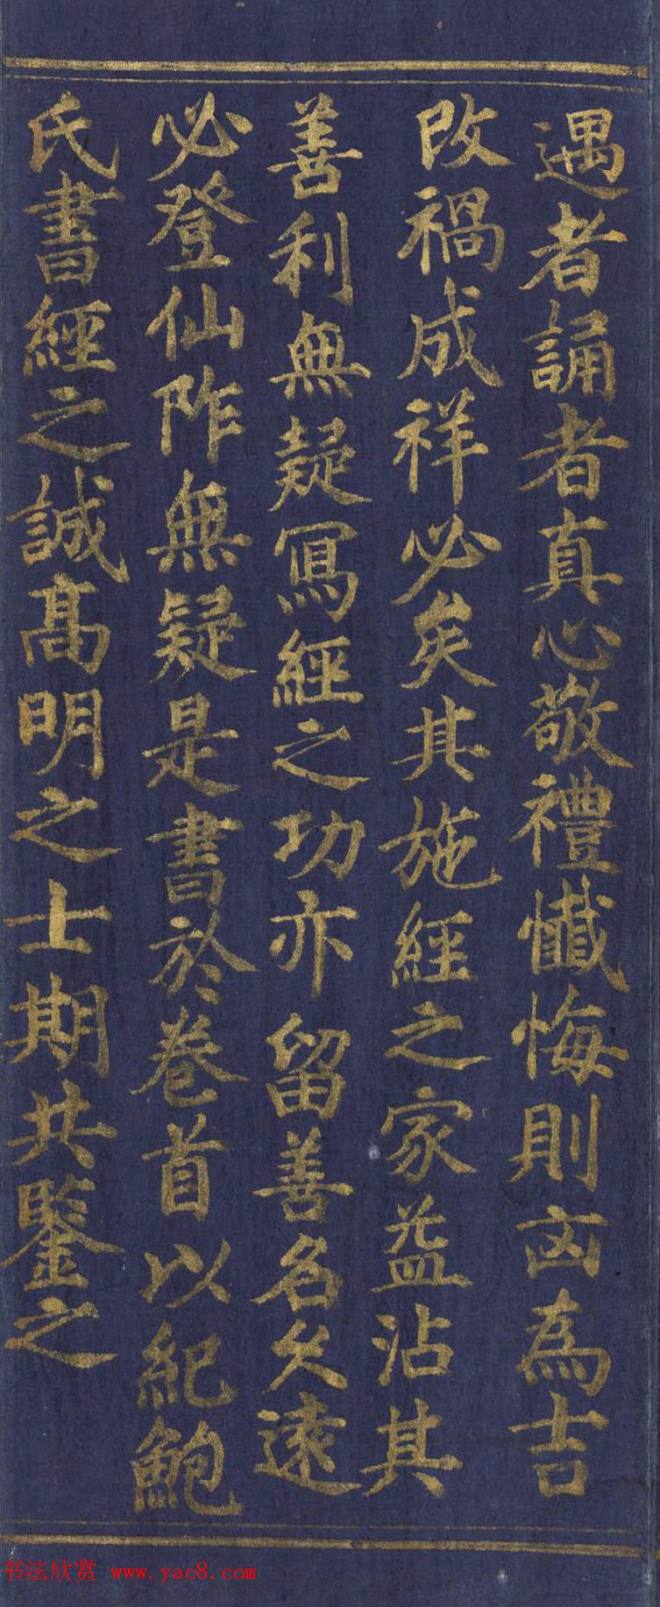 遇者誦者真心敬禮懺悔則凶為吉
改禍成祥必矣其施經之家益沾其
善利無疑寫經之功亦留善名久遠
必登仙阼無疑是書於卷首以紀鮑
氏書經之誠髙明之士期共鑒之
书法欣赏 www.yac8.com